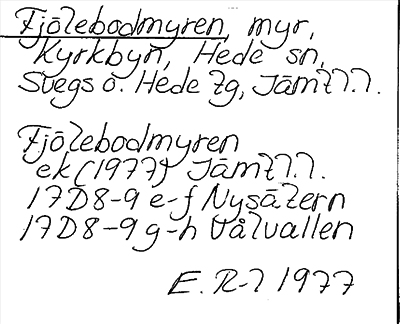 Fjölebodmyren myr,
Kyrkbyn, Hede sn,
Svegs o. Hede tg, Jämtl.l.
Fjölebodmyren
ek (1977) Jämtl.l.
17D8-9 e-f Nysätern
17D8-9 g-h Vålvallen
E. R-l 1977